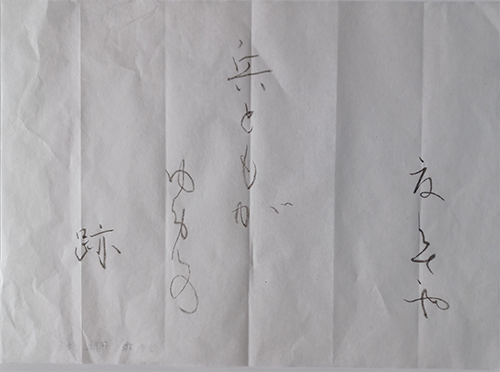 夏草や
兵ともが
ゆめの
跡